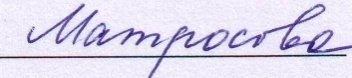 Матросова